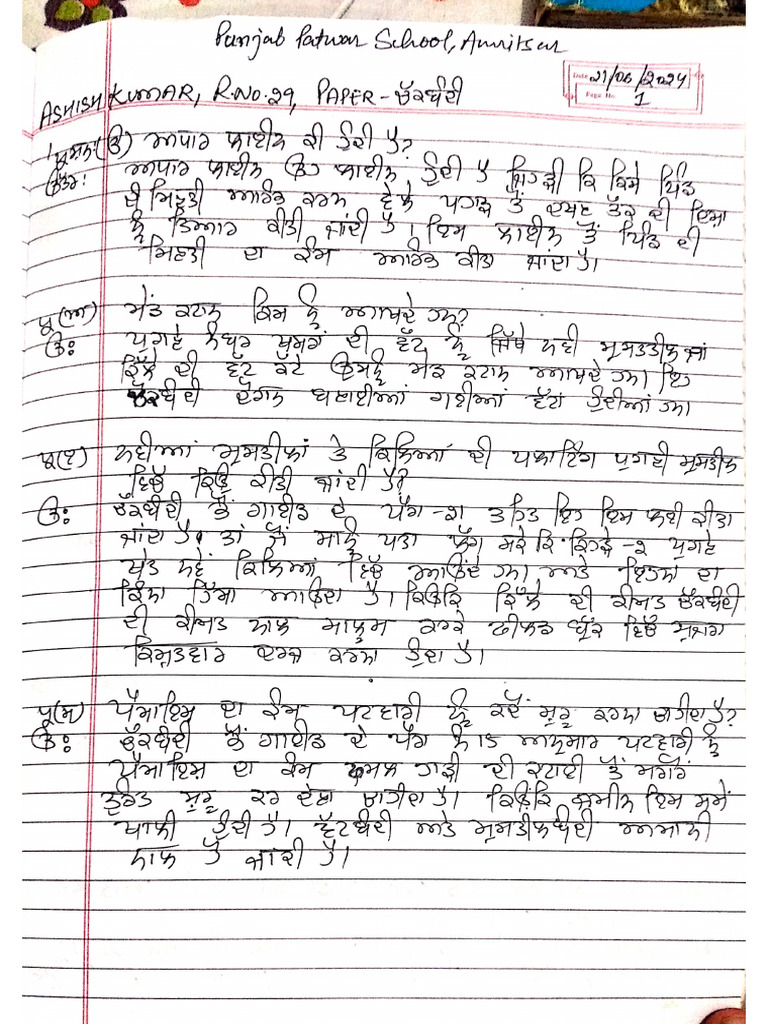 Punjab Patwar School, Amritsar
Date 21/06/2024
Page No. 1
ASHISH KUMAR, R.NO.29, PAPER - ਚੱਕਬੰਦੀ
ਪ੍ਰਸ਼ਨ:(ੳ) ਅਧਾਰ ਲਾਈਨ ਕੀ ਹੁੰਦੀ ਹੈ?
ਉੱਤਰ: ਅਧਾਰ ਲਾਈਨ ਉਹ ਲਾਈਨ ਹੁੰਦੀ ਹੈ ਜਿਹੜੀ ਕਿ ਕਿਸੇ ਪਿੰਡ
ਦੀ ਮਿਣਤੀ ਆਰੰਭ ਕਰਨ ਵੇਲੇ ਪਹਾੜ ਤੋਂ ਦੱਖਣ ਤੱਕ ਦੀ ਦਿਸ਼ਾ
ਨੂੰ ਤਿਆਰ ਕੀਤੀ ਜਾਂਦੀ ਹੈ। ਇਸ ਲਾਈਨ ਤੋਂ ਪਿੰਡ ਦੀ
ਮਿਣਤੀ ਦਾ ਕੰਮ ਆਰੰਭ ਕੀਤਾ ਜਾਂਦਾ ਹੈ।
ਪ੍ਰ(ਅ) ਮੇਂਡ ਕਟਾਨ ਕਿਸ ਨੂੰ ਆਖਦੇ ਹਨ?
ਉ: ਪੁਰਾਣੇ ਨੰਬਰ ਖਸਰਾ ਦੀ ਵੱਟ ਨੂੰ ਜਿੱਥੇ ਨਵੀਂ ਮੁਸਤਤੀਲ ਜਾਂ
ਕਿੱਲੇ ਦੀ ਵੱਟ ਕੱਟੇ ਉਸਨੂੰ ਮੇਂਡ ਕਟਾਨ ਆਖਦੇ ਹਨ। ਇਹ
ਚੱਕਬੰਦੀ ਦੌਰਾਨ ਬਣਾਈਆਂ ਗਈਆਂ ਵੱਟਾਂ ਹੁੰਦੀਆਂ ਹਨ।
ਪ੍ਰ(ੲ) ਨਵੀਆਂ ਮੁਸਤਤੀਲਾਂ ਤੇ ਕਿੱਲਿਆਂ ਦੀ ਪਲਾਟਿੰਗ ਪੁਰਾਣੀ ਮੁਸਤਤੀਲ
ਵਿੱਚੋਂ ਕਿਉਂ ਕੀਤੀ ਜਾਂਦੀ ਹੈ?
ਉ: ਚੱਕਬੰਦੀ ਕੋਂ ਗਾਈਡ ਦੇ ਪੈਰਾ-21 ਤਹਿਤ ਇਹ ਇਸ ਲਈ ਕੀਤਾ
ਜਾਂਦਾ ਹੈ, ਤਾਂ ਜੋ ਸਾਨੂੰ ਪਤਾ ਲੱਗ ਸਕੇ ਕਿ ਕਿਹੜੇ-2 ਪੁਰਾਣੇ
ਖੇਤ ਨਵੇਂ ਕਿੱਲਿਆਂ ਵਿੱਚ ਆਉਂਦੇ ਹਨ। ਅਤੇ ਇਹਨਾਂ ਦਾ
ਕਿੰਨਾ ਹਿੱਸਾ ਆਉਂਦਾ ਹੈ। ਕਿਉਂਕਿ ਕਿੱਲੇ ਦੀ ਕੀਮਤ ਚੱਕਬੰਦੀ
ਦੀ ਕੀਮਤ ਨਾਲ ਮਾਲੂਮ ਕਰਕੇ ਫੀਲਡ ਬੁੱਕ ਵਿੱਚ
ਕਿਸਮਵਾਰ ਦਰਜ ਕਰਨਾ ਹੁੰਦਾ ਹੈ।
ਪ੍ਰ(ਸ) ਪੈਮਾਇਸ਼ ਦਾ ਕੰਮ ਪਟਵਾਰੀ ਨੂੰ ਕਦੋਂ ਸ਼ੁਰੂ ਕਰਨਾ ਚਾਹੀਦਾ ਹੈ?
ਉ: ਚੱਕਬੰਦੀ ਕੋਂ ਗਾਈਡ ਦੇ ਪੈਰਾ ਨੰ 15 ਅਨੁਸਾਰ ਪਟਵਾਰੀ ਨੂੰ
ਪੈਮਾਇਸ਼ ਦਾ ਕੰਮ ਫਸਲ ਹਾੜੀ ਦੀ ਕਟਾਈ ਤੋਂ ਮਗਰੋਂ
ਤੁਰੰਤ ਸ਼ੁਰੂ ਕਰ ਦੇਣਾ ਚਾਹੀਦਾ ਹੈ। ਕਿਉਂਕਿ ਜ਼ਮੀਨ ਇਸ ਸਮੇਂ
ਖਾਲੀ ਹੁੰਦੀ ਹੈ। ਵੱਟਬੰਦੀ ਅਤੇ ਮੁਸਤਤੀਲਬੰਦੀ ਆਸਾਨੀ
ਨਾਲ ਹੋ ਜਾਂਦੀ ਹੈ।